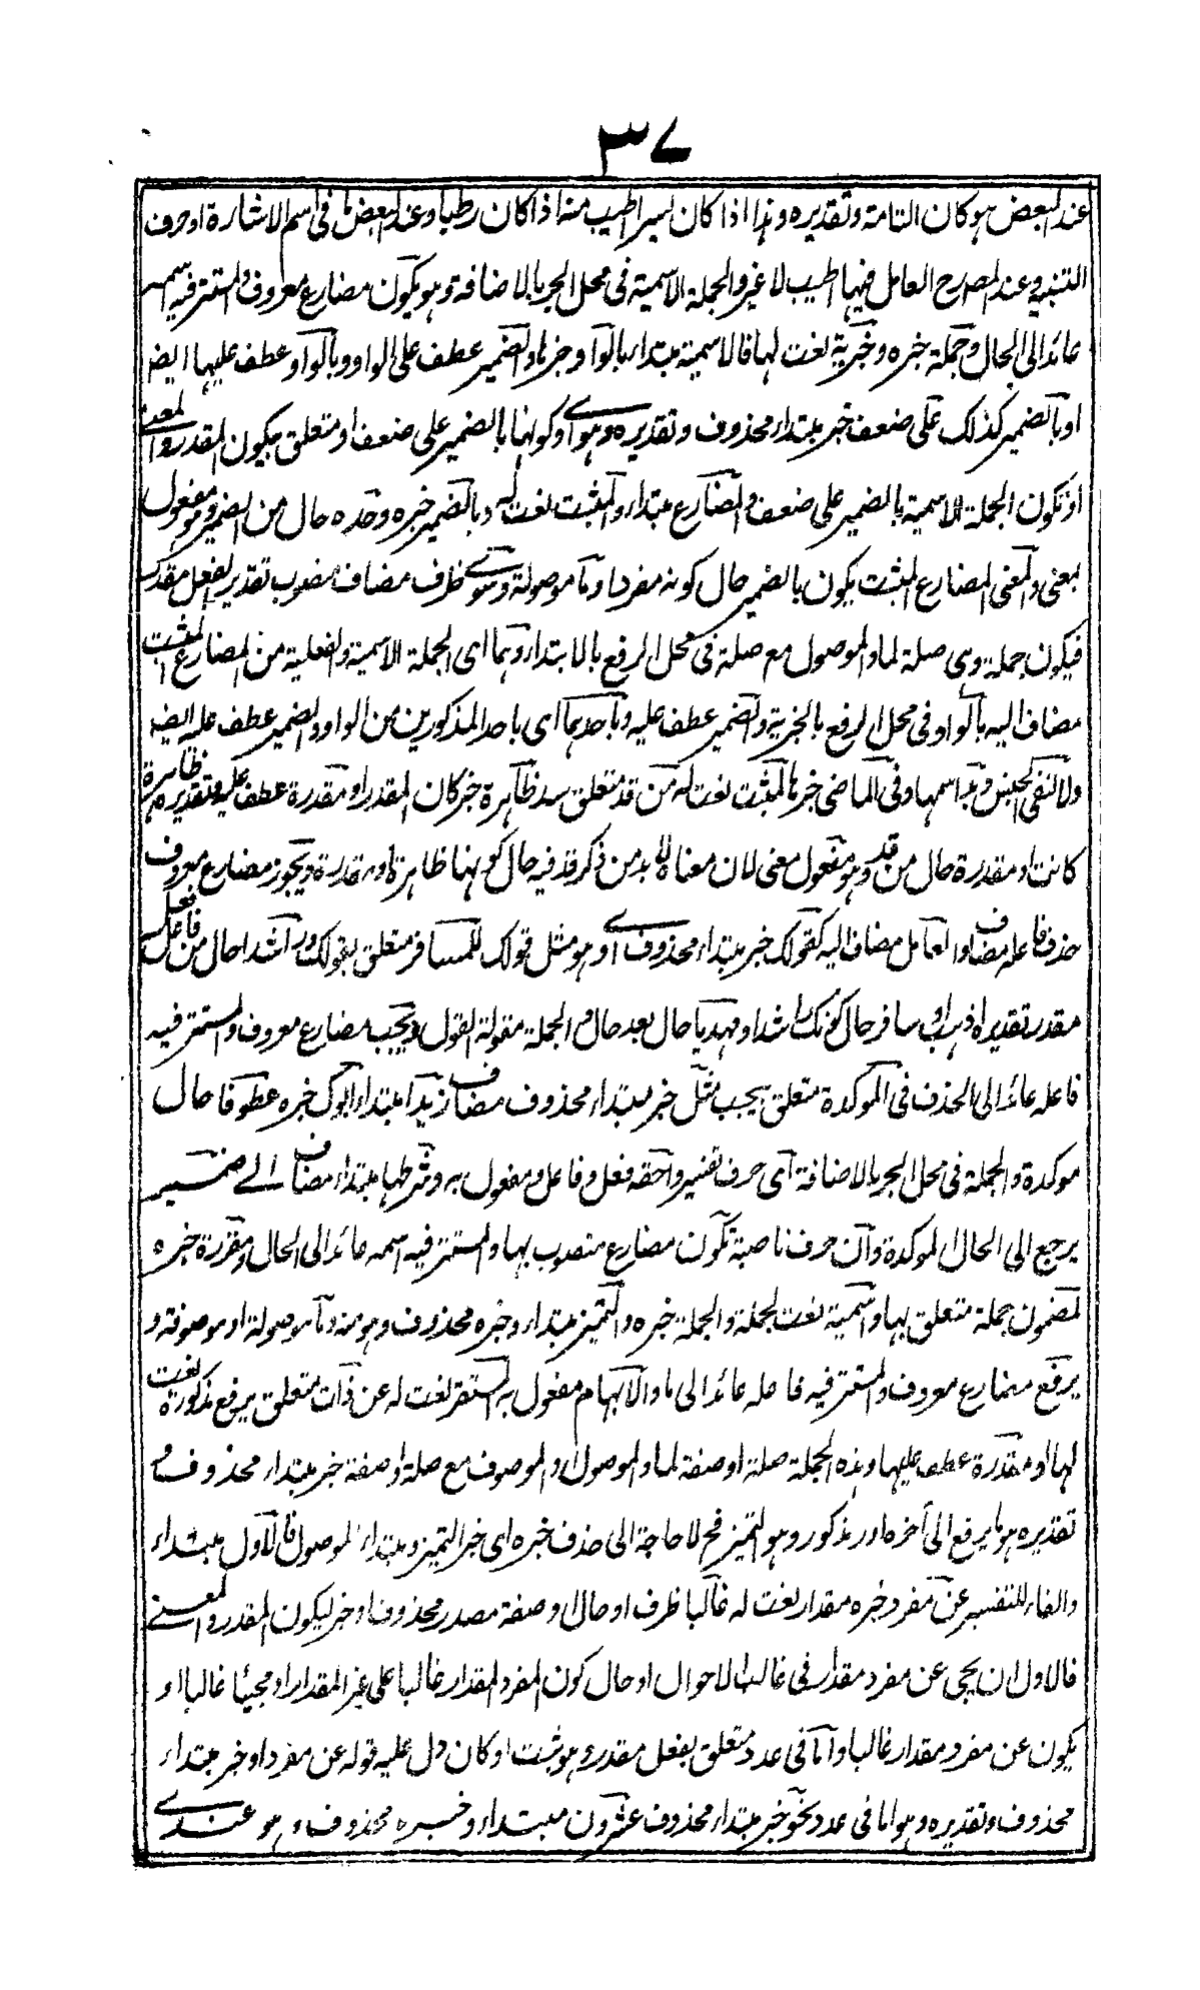 ٣٧
عند البعض هو كان التامة وتقديره وهذا اذا كان بسرا اطيب منه اذا كان رطبا وعند البعض ما فى اسم الاشارة او حرف
التنبيه وعند المصرح العامل فيها اطيب لا غير والجملة الاسمية فى محل الجر بالاضافة وهو يكون مضارع معروف والمستتر فيه اسمه
عائد الى الحال وجملة خبره وخبرية نعت لها فالاسمية مبتدا بالواو خبرها والضمير عطف على الواو وبالواو عطف عليها ايضا
او بالضمير كذلك على ضعف خبر مبتدا محذوف وتقديره وهو اى كونها بالضمير على ضعف او متعلق بيكون المقدر والمعنى
او تكون الجملة الاسمية بالضمير على ضعف والمضارع مبتدا والمثبت نعت له وبالضمير خبره وحده حال من الضمير وهو مفعول
بمعنى والمعنى المضارع المثبت يكون بالضمير حال كونه مفردا وما موصولة وسوى ظرف مضاف منصوب تقدير الفعل مقدر
فيكون جملة وهى صلة لما والموصول مع صلته فى محل الرفع بالابتداء وهما اى الجملة الاسمية والفعلية من المضارع المثبت
مضاف اليه بالواو فى محل الرفع بالخبرية والضمير عطف عليه وباحدهما اى باحد المذكورين من الواو والضمير عطف عليه ايضا
ولا لنفى الجنس وبد اسمها وفى الماضى خبرها المثبت نعت له من قد متعلق ببد ظاهرة خبر كان المقدر او مقدرة عطف عليه وتقديره ظاهرة
كانت او مقدرة حال من قد وهو مفعول معنى لان معناه لا بد من ذكر قد فيه حال كونها ظاهرة او مقدرة ويجوز مضارع معروف
حذف فاعله مضاف والعامل مضاف اليه كقولك خبر مبتدا محذوف اى وهو مثل قولك للمسافر متعلق بقولك وراشدا حال من فاعل فعل
مقدر تقديره اذهب او سافر حال كونك راشدا ومهديا حال بعد حال والجملة مقولة القول ويجب مضارع معروف والمستتر فيه
فاعله عائد الى الحذف فى الموكدة متعلق بيجب مثل خبر مبتدا محذوف مضاف زيد مبتدا ابوك خبره عطوفا حال
موكدة والجملة فى محل الجر بالاضافة اى حرف تفسير واحقه فعل وفاعل ومفعول به وشرطها مبتدا مضاف الى ضمير
يرجع الى الحال الموكدة وان حرف ناصبة تكون مضارع منصوب بها والمستتر فيه اسمه عائد الى الحال ومقررة خبره
لمضمون جملة متعلق بها واسمية نعت لجملة والجملة خبره والتميز مبتدا وخبره محذوف وهو منه وما موصولة او موصوفة و
يرفع مضارع معروف والمستتر فيه فاعله عائد الى ما والابهام مفعول به المستقر نعت له عن ذات متعلق بيرفع مذكورة نعت
لها او مقدرة عطف عليها وهذه الجملة صلة او صفة لما والموصول والموصوف مع صلة او صفة خبر مبتدا محذوف
تقديره هو ما يرفع الى آخره او مذكور وهو التميز فح لا حاجة الى حذف خبره اى خبر التميز ومبتدا الموصول فالاول مبتداء
والفاء للتفسير عن مفرد خبره مقدار نعت له غالبا ظرف او حال او صفة مصدر محذوف او خبر ليكون المقدر والمعنى
فالاول ان يجئ عن مفرد مقدار فى غالب الاحوال او حال كون المفرد المقدار غالبا على غير المقدار او مجيئا غالبا او
يكون عن مفرد مقدار غالبا واما فى عدد متعلق بفعل مقدر وهو يثبت او كان دل عليه قوله عن مفرد او خبر مبتداء
محذوف وتقديره وهو اما فى عدد نحو خبر مبتداء محذوف عشرون مبتداء وخبره محذوف وهو عندى